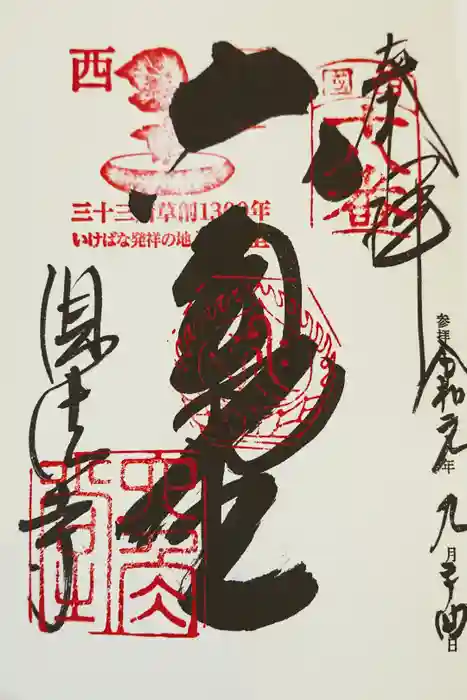 奉拝
西國
十八番
参拝 令和元年 九月二十四日
六角堂
西
三十三所草創1300年
いけばな発祥の地
頂法寺